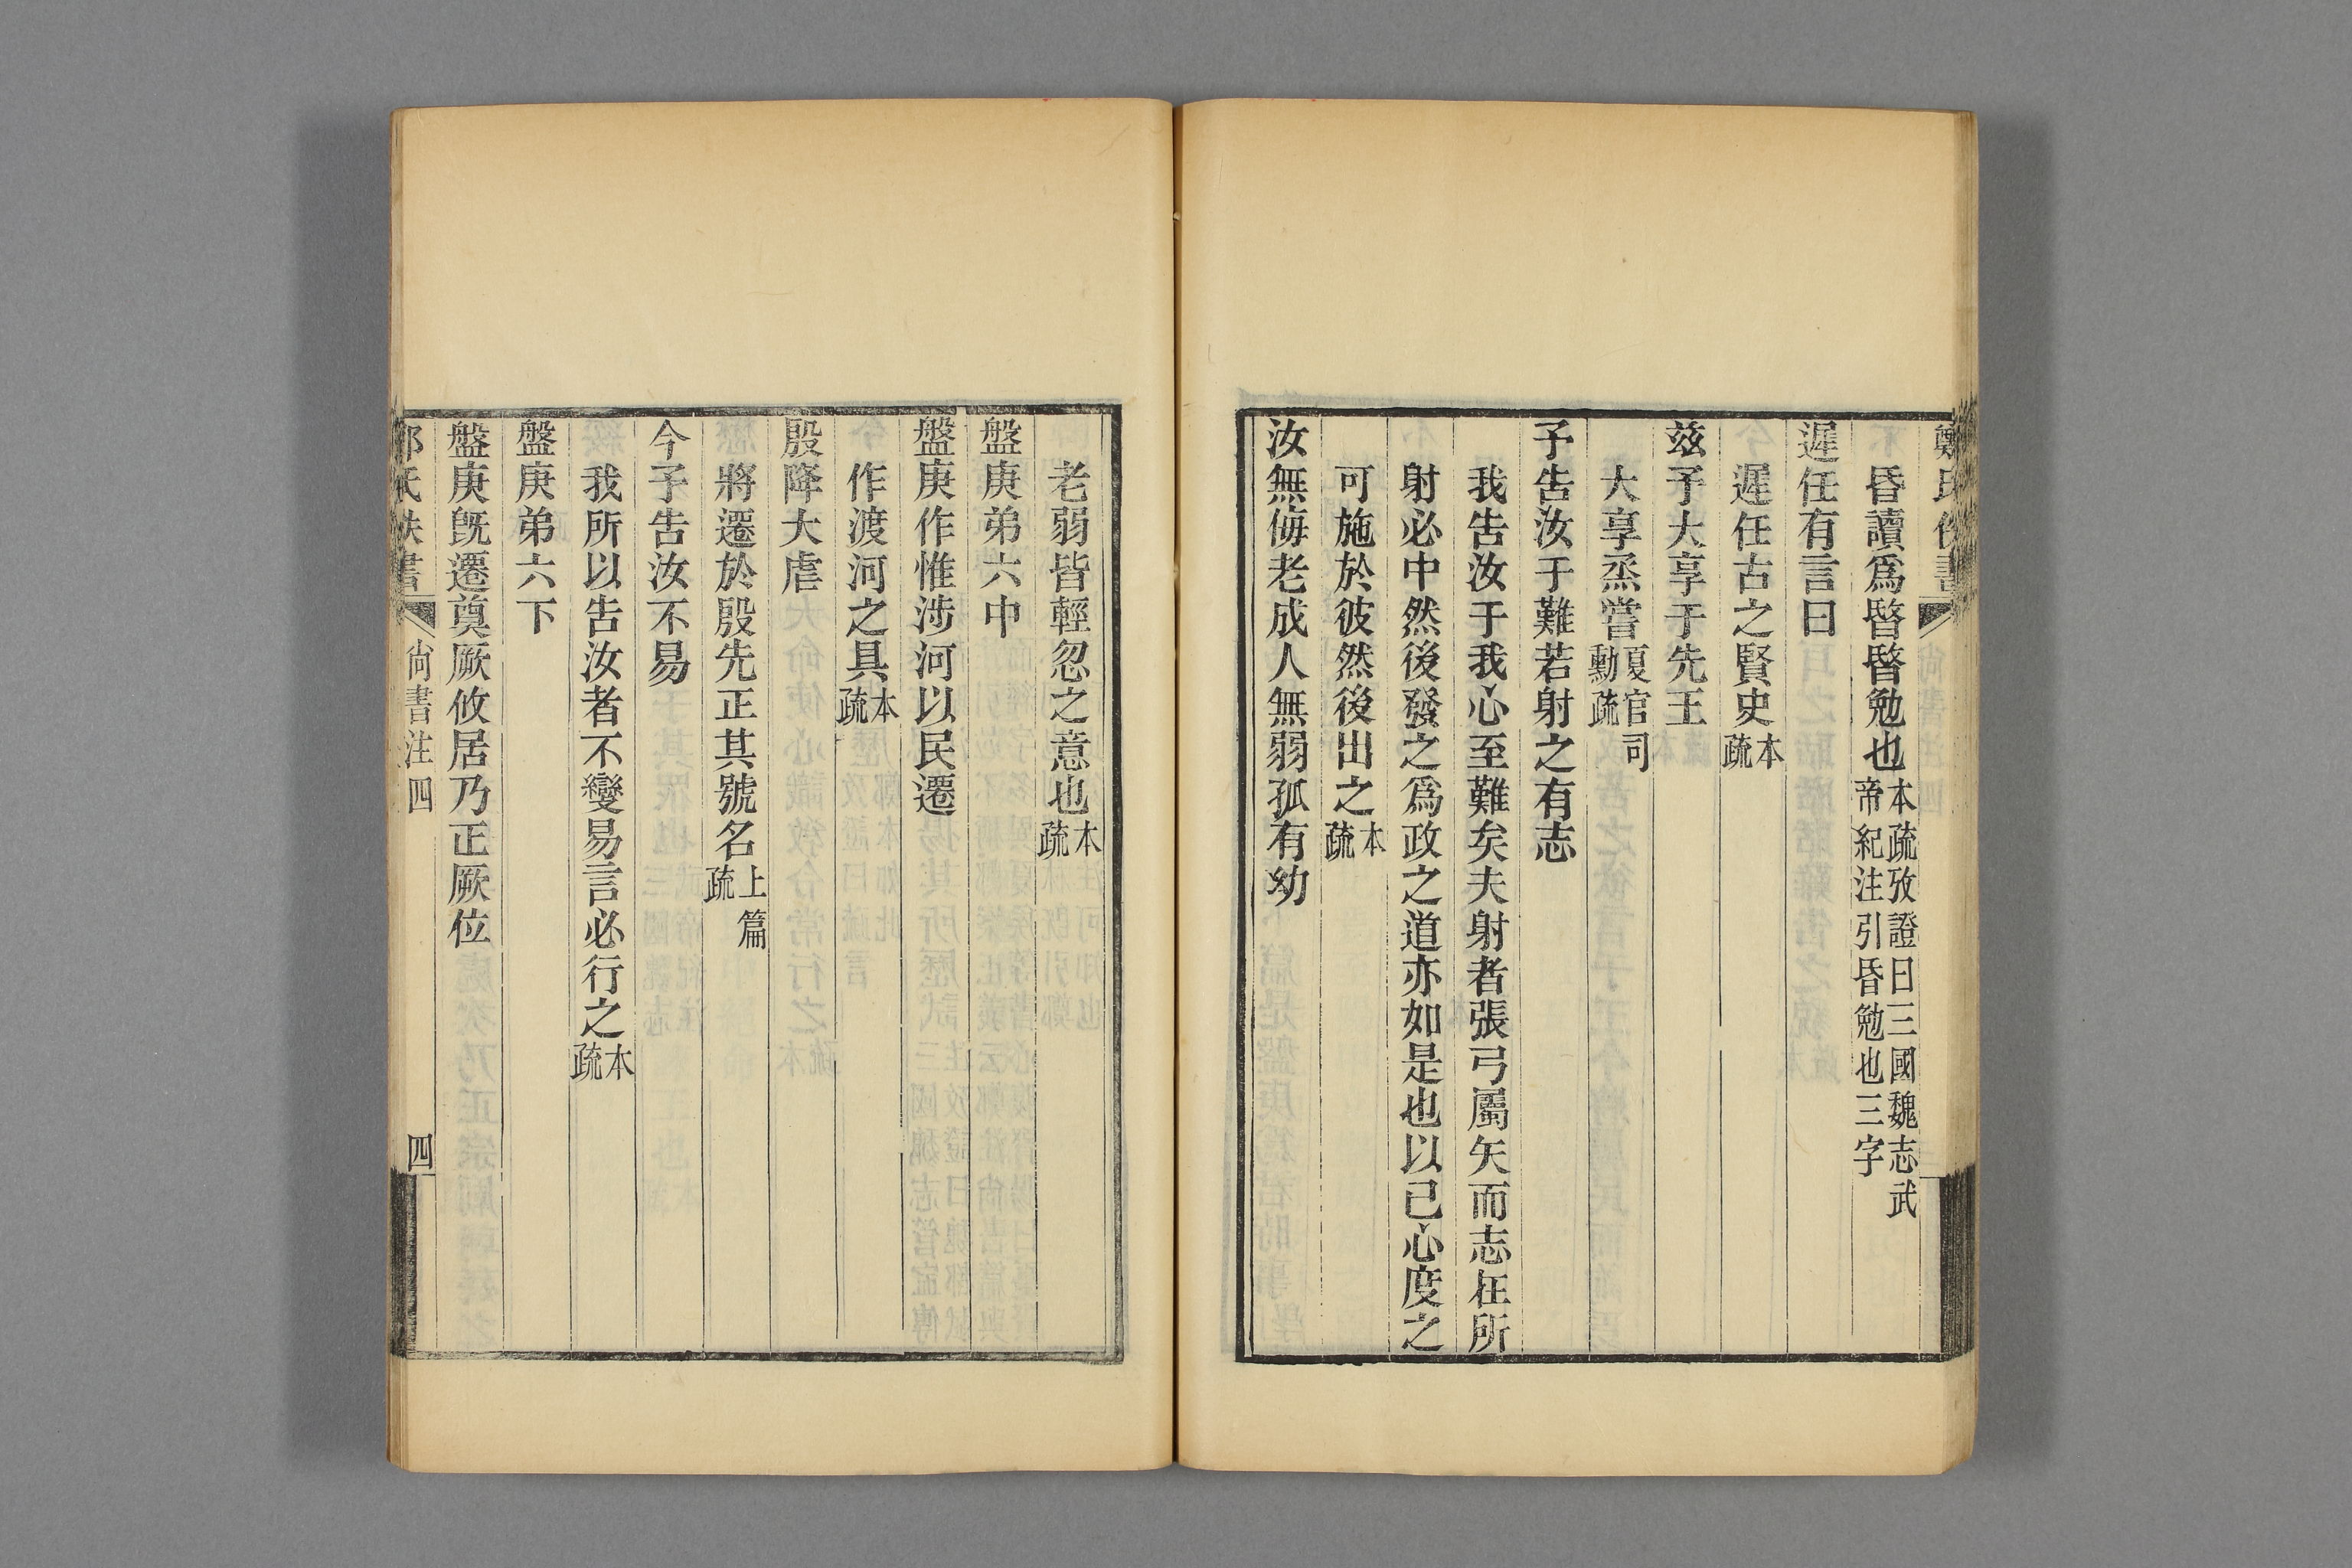 昏讀爲暋暋勉也本疏攷證曰三國魏志武帝紀注引昏勉也三字
遲任有言曰
遲任古之賢史本疏
兹予大享于先王
大享烝嘗夏官司勳疏
予告汝于難若射之有志
我告汝于我心至難矣夫射者張弓屬矢而志在所
射必中然後發之爲政之道亦如是也以己心度之
可施於彼然後出之本疏
汝無侮老成人無弱孤有幼
老弱皆輕忽之意也本疏
盤庚弟六中
盤庚作惟涉河以民遷
作渡河之具本疏
殷降大虐
將遷於殷先正其號名上篇疏
今予告汝不易
我所以告汝者不變易言必行之本疏
盤庚弟六下
盤庚旣遷奠厥攸居乃正厥位
尙書注四 四